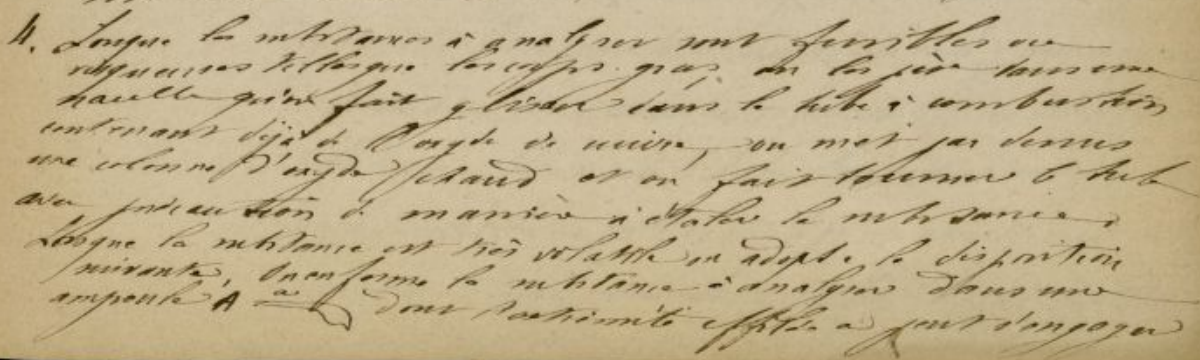 4. Lorsque les substances à analyser sont fusibles ou
visqueuses telles que les corps gras, on les pèse dans une
nacelle qu'on fait glisser dans le tube à combustion
contenant déjà de l'oxyde de cuivre, on met par dessus
une colonne d'oxyde chaud et on fait tourner le tube
avec précaution de manière à étaler la substance.
Lorsque la substance est très volatile on adopte la disposition
suivante. On enferme la substance à analyser dans une
ampoule A a dont l'extrémité effilée a peut s'engager